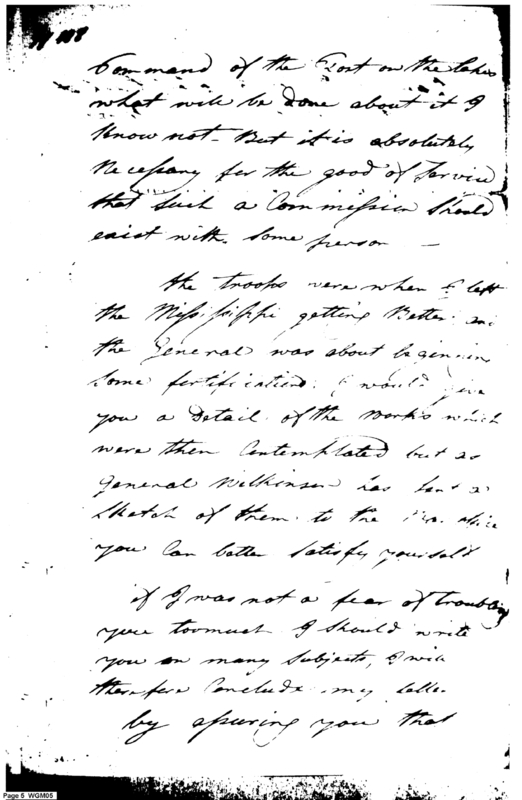 Command of the Post on the Lakes
what will be done about it I
know not - But it is absolutely
Necessary for the good of Service
that such a Commission Should
exist with some person -
the troops were when I left
the Mississippi getting Better and
the General was about beginning
some fortifications. I would give
you a Detail of the works which
were then Contemplated but as
General Wilkinson has sent a
Sketch of them to the
you Can better Satisfy yourself
if I was not a fear of troubling
you toomuch I should write
you on many Subjects, I will
therefore Conclude my letter
by assuring you that
Page 5 WGM05